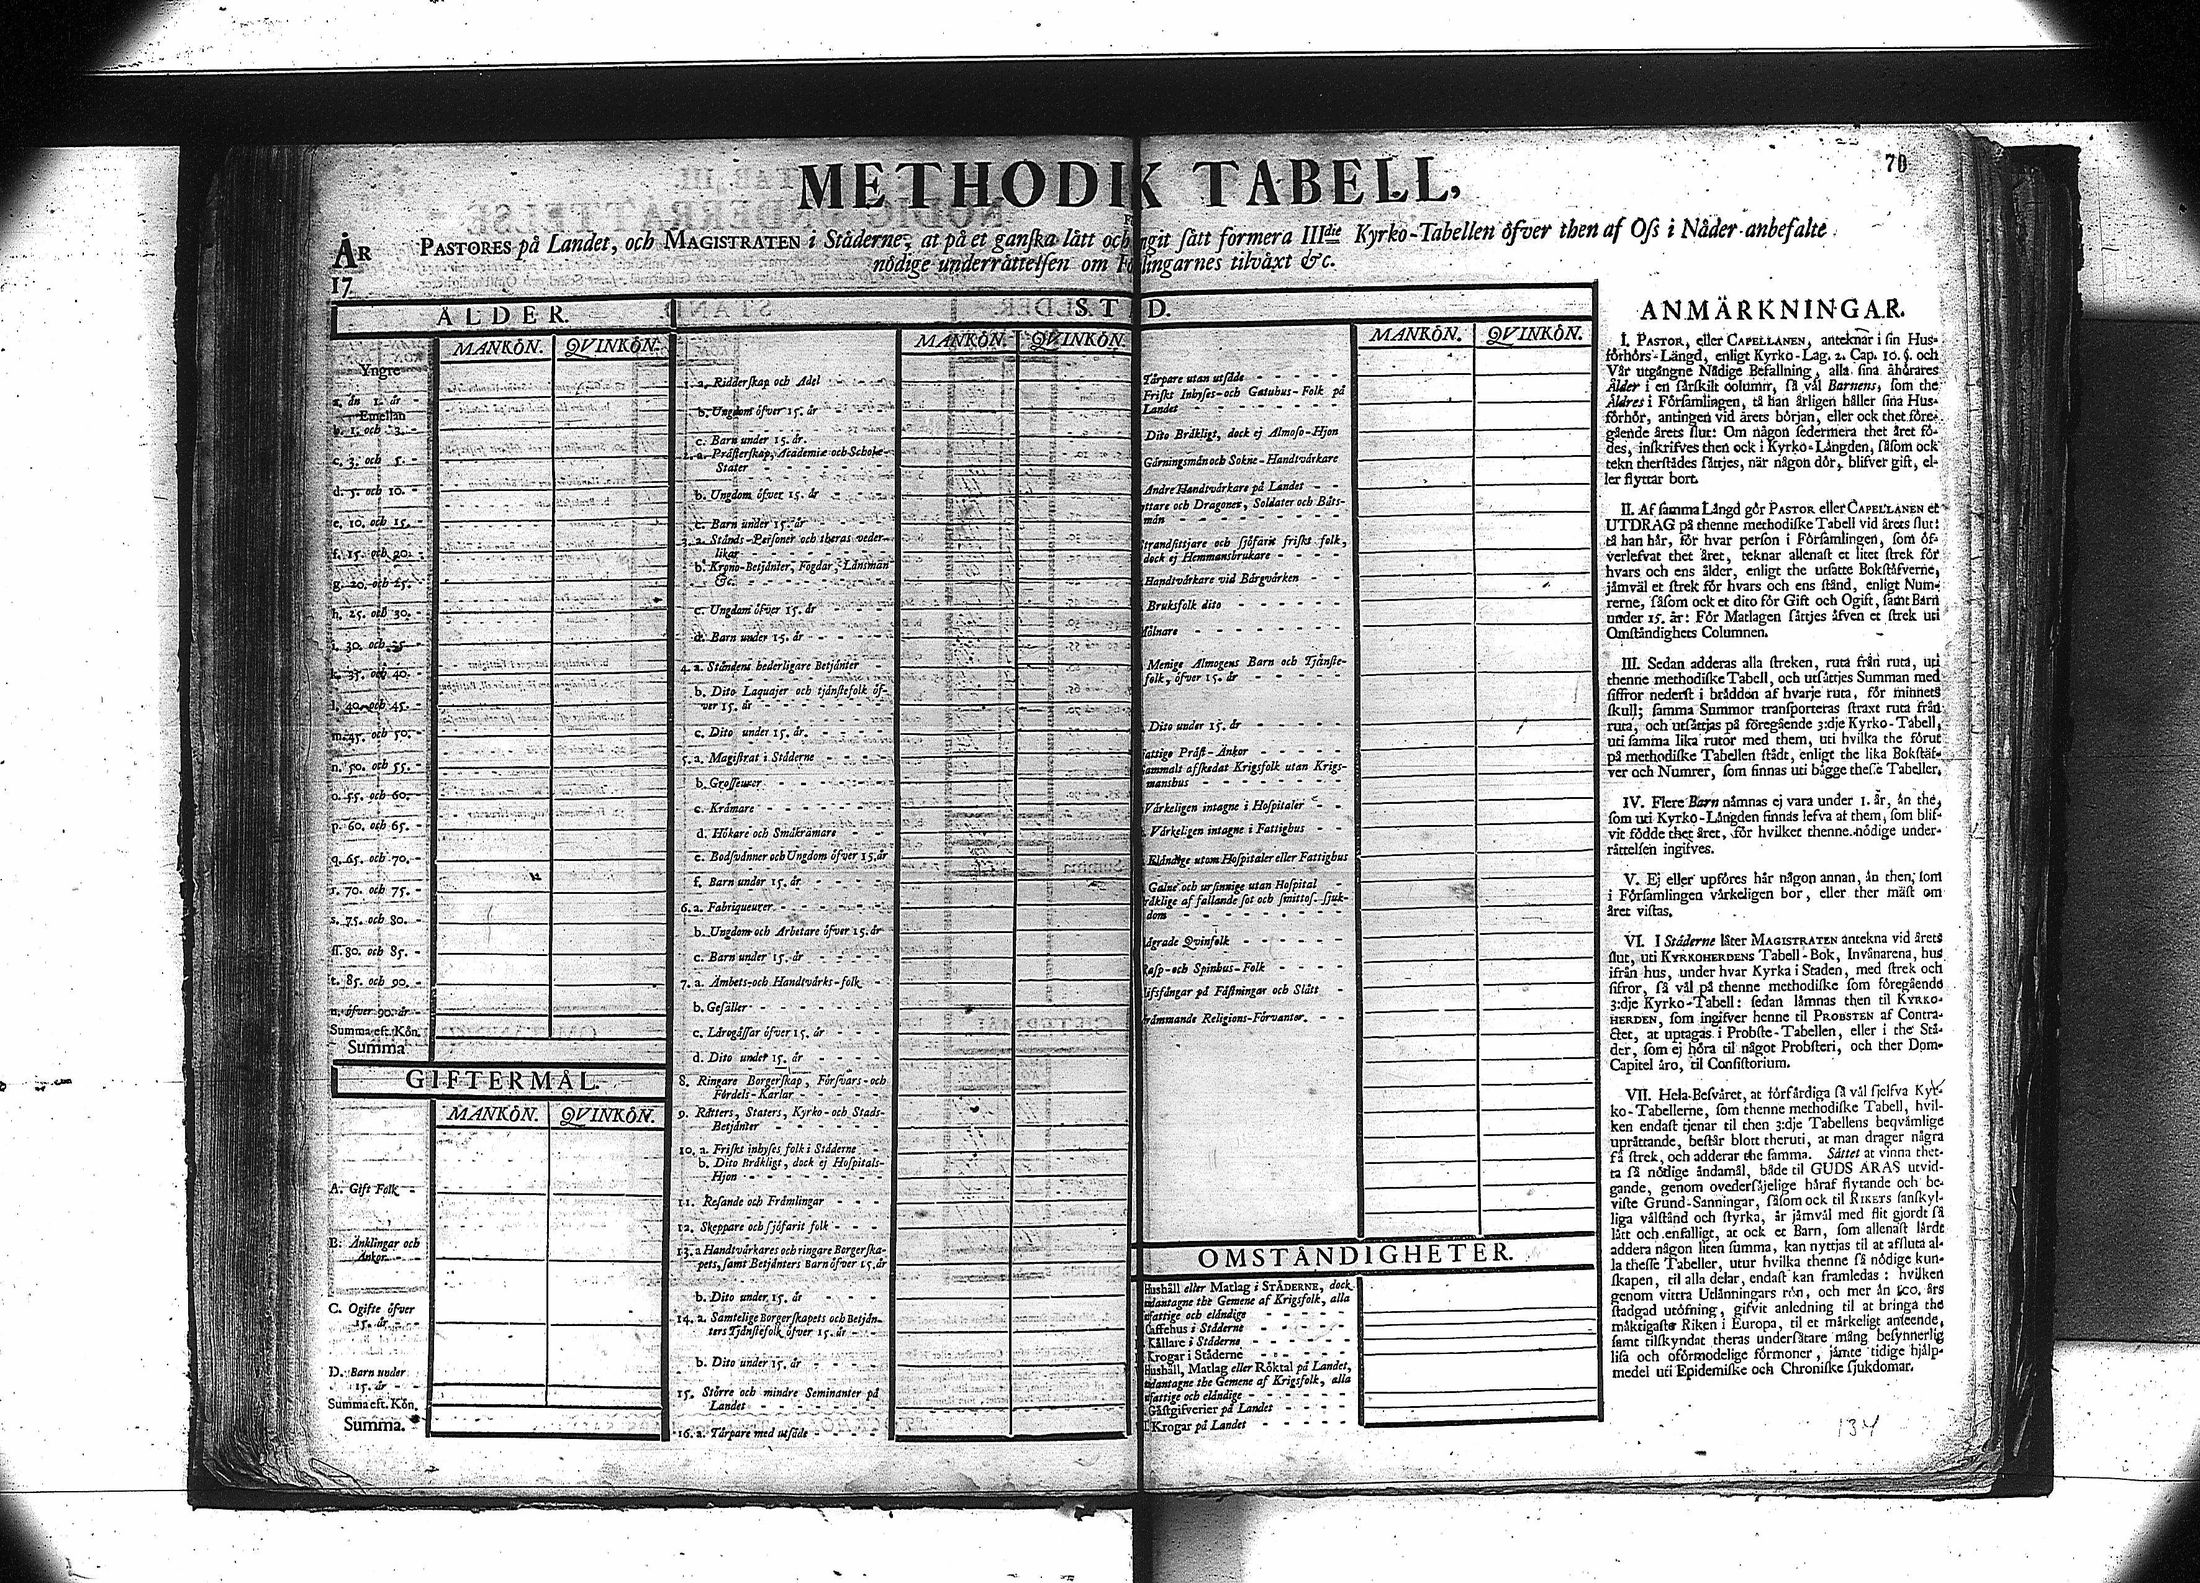 METHODIK TABELL,
70
PASTORES på Landet, och MAGISTRATEN i Ståderne, at på et ganſka lått och ſått formera IIIdie Kyrko-Tabellen öfver then af Oſs i Nåder anbefalte
nödige underråttelſen om lingarnes tilvåxt &c.
ÅR
17
ÅLDER.
MANKÖN. QVINKÖN.
Yngre
a. ån 1. år -
Emellan
b. 1. och 3. -
c. 3. och 5. -
d. 5. och 10. -
e. 10. och 15. -
f. 15. och 20. -
g. 20. och 25. -
h. 25. och 30. -
i. 30. och 35
k. 35. och 40. -
l. 40. och 45. -
m. 45. och 50. -
n. 50. och 55. -
o. 55. och 60. -
p. 60. och 65. -
q. 65. och 70. -
r. 70. och 75. -
s. 75. och 80. -
ſſ. 80. och 85. -
t. 85. och 90. -
u. öfver 90. år -
Summa eft. Kön.
Summa
GIFTERMÅL.
MANKÖN. QVINKÖN.
A. Gift Folk -
B. Ånklingar och
Ånkor -
C. Ogifte öfver
15. år - -
D. Barn under
15. år -
Summa eft. Kön.
Summa.
ST D.
MANKÖN. QVINKÖN.
1. a. Ridderſkap och Adel - - - -
b. Ungdom öfver 15. år - - -
c. Barn under 15. år.
2. a. Pråſterſkap, Academiæ och Schole-
Stater - - - - -
b. Ungdom öfver 15. år - - -
c. Barn under 15. år - - - -
3. a. Stånds-Perſoner och theras veder-
likar - - - - -
b. Krono-Betjånter, Fogdar, Lånsmån
&c. - - - - -
c. Ungdom öfver 15. år - - -
d. Barn under 15. år - - - -
4. a. Ståndens hederligare Betjånter -
b. Dito Laquajer och tjånſtefolk öf-
ver 15. år - - - - -
c. Dito under 15. år. - - - -
5. a. Magiſtrat i Ståderne - - - -
b. Groſſeurer - - - - -
c. Kråmare - - - - -
d. Hökare och Småkråmare - -
e. Bodſvånner och Ungdom öfver 15. år
f. Barn under 15. år - - - -
6. a. Fabriqueurer - - - - -
b. Ungdom och Arbetare öfver 15. år
c. Barn under 15. år - - - -
7. a. Åmbets-och Handtvårks-folk - -
b. Geſåller - - - - -
c. Lårogåſſar öfver 15. år - - -
d. Dito under 15. år - - - -
8. Ringare Borgerſkap, Förſvars-och
Fördels-Karlar - - - -
9. Råtters, Staters, Kyrko-och Stads-
Betjånter - - - - -
10. a. Friſkt inhyſes folk i Ståderne -
b. Dito Bråkligt, dock ej Hoſpitals-
Hjon - - - - -
11. Reſande och Fråmlingar - - -
12. Skeppare och ſjöfarit folk - - -
13. a Handtvårkares och ringare Borgerſka-
pets, ſamt Betjånters Barn öfver 15. år
b. Dito under 15. år - - - -
14. a. Samtelige Borgerſkapets och Betjån-
ters Tjånſtefolk öfver 15. år - -
b. Dito under 15. år - - - -
15. Större och mindre Seminanter på
Landet - - - - -
16. a. Tårpare med utſåde - - - -
MANKÖN. QVINKÖN.
Tårpare utan utſåde - - - -
Friſkt Inhyſes-och Gatuhus-Folk på
Landet - - - - -
Dito Bråkligt, dock ej Almoſo-Hjon
Gårningsmån och Sokne-Handtvårkare
Andre Handtvårkare på Landet - -
ttare och Dragoner, Soldater och Båts-
mån - - - - -
Strandſittjare och ſjöfarit friſkt folk,
dock ej Hemmansbrukare - - -
Handtvårkare vid Bårgvårken - -
Bruksfolk dito - - - - -
ölnare - - - - -
Menige Almogens Barn och Tjånſte-
folk, öfver 15. år - - - -
Dito under 15. år - - - -
attige Pråſt-Ånkor - - - -
ammalt afſkedat Krigsfolk utan Krigs-
manshus - - - - -
Vårkeligen intagne i Hoſpitaler - -
Vårkeligen intagne i Fattighus - -
Elåndige utom Hoſpitaler eller Fattighus
Galne och urſinnige utan Hoſpital -
råklige af fallande ſot och ſmittoſ. ſjuk-
dom - - - - -
ågrade Qvinfolk - - - - -
Raſp-och Spinhus-Folk - - - -
ifsfångar på Fåſtningar och Slått -
råmmande Religions-Förvanter. - -
OMSTÅNDIGHETER.
Hushåll eller Matlag i STÅDERNE, dock
undantagne the Gemene af Krigsfolk, alla
utfattige och elåndige - - - -
Caffehus i Ståderne - - - -
Kållare i Ståderne - - - -
Krogar i Ståderne - - - -
Hushåll, Matlag eller Röktal på Landet,
undantagne the Gemene af Krigsfolk, alla
utfattige och elåndige - - - -
Gåſtgifverier på Landet - - - -
Krogar på Landet - - - - -
ANMÄRKNINGAR.
I. PASTOR, eller CAPELLANEN, anteknar i ſin Hus-
förhörs-Långd, enligt Kyrko-Lag. 2. Cap. 10. §. och
Vår utgångne Nådige Befallning, alla ſina åhörares
Ålder i en ſårſkilt column, ſå vål Barnens, ſom the
Åldres i Förſamlingen, tå han årligen håller ſina Hus-
förhör, antingen vid årets början, eller ock thet före-
gående årets ſlut: Om någon ſedermera thet året fö-
des, inſkrifves then ock i Kyrko-Långden, ſåſom ock
tekn therſtådes ſåttjes, når någon dör, blifver gift, el-
ler flyttar bort.
II. Af ſamma Långd gör PASTOR eller CAPELLANEN et
UTDRAG på thenne methodiſke Tabell vid årets ſlut:
tå han hår, för hvar perſon i Förſamlingen, ſom öf-
verlefvat thet året, teknar allenaſt et litet ſtrek för
hvars och ens ålder, enligt the utſatte Bokſtåfverne,
jåmvål et ſtrek för hvars och ens ſtånd, enligt Num-
rerne, ſåſom ock et dito för Gift och Ogift, ſamt Barn
under 15. år: För Matlagen ſåttjes åfven et ſtrek uti
Omſtåndighets Columnen.
III. Sedan adderas alla ſtreken, ruta från ruta, uti
thenne methodiſke Tabell, och utſåttjes Summan med
ſiffror nederſt i brådden af hvarje ruta, för minnets
ſkull; ſamma Summor transporteras ſtraxt ruta från
ruta, och utſåttjas på föregående 3:dje Kyrko-Tabell,
uti ſamma lika rutor med them, uti hvilka the förut
på methodiſke Tabellen ſtådt, enligt the lika Bokſtåf-
ver och Numrer, ſom finnas uti bågge theſſe Tabeller.
IV. Flere Barn nåmnas ej vara under 1. år, ån the,
ſom uti Kyrko-Långden finnas lefva af them, ſom blif-
vit födde thet året, för hvilket thenne nödige under-
råttelſen ingifves.
V. Ej eller upföres hår någon annan, ån then, ſom
i Förſamlingen vårkeligen bor, eller ther måſt om
året viſtas.
VI. I Ståderne låter MAGISTRATEN antekna vid årets
ſlut, uti KYRKOHERDENS Tabell-Bok, Invånarena, hus
ifrån hus, under hvar Kyrka i Staden, med ſtrek och
ſifror, ſå vål på thenne methodiſke ſom föregående
3:dje Kyrko-Tabell: ſedan låmnas then til KYRKO-
HERDEN, ſom ingifver henne til PROBSTEN af Contra-
ctet, at uptagas i Probſte-Tabellen, eller i the Stå-
der, ſom ej höra til något Probſteri, och ther Dom-
Capitel åro, til Conſiſtorium.
VII. Hela Beſvåret, at förfårdiga ſå vål ſjelfva Kyr-
ko-Tabellerne, ſom thenne methodiſke Tabell, hvil-
ken endaſt tjenar til then 3:dje Tabellens beqvåmlige
upråttande, beſtår blott theruti, at man drager några
få ſtrek, och adderar the ſamma. Såttet at vinna thet-
ta ſå nödige åndamål, både til GUDS ÅRAS utvid-
gande, genom ovederſåjelige håraf flytande och be-
viſte Grund-Sanningar, ſåſom ock til RIKETS ſanſkyl-
liga vålſtånd och ſtyrka, år jåmvål med flit gjordt ſå
lått och enfalligt, at ock et Barn, ſom allenaſt lårdt
addera någon liten ſumma, kan nyttjas til at afſluta al-
la theſſe Tabeller, utur hvilka thenne ſå nödige kun-
ſkapen, til alla delar, endaſt kan framledas: hvilken
genom vittra Utlånningars rön, och mer ån 100. års
ſtadgad utöfning, gifvit anledning til at bringa the
måktigaſte Riken i Europa, til et mårkeligt anſeende,
ſamt tilſkyndat theras underſåtare mång beſynnerlig
liſa och oförmodelige förmoner, jåmte tidige hjålp-
medel uti Epidemiſke och Chroniſke ſjukdomar.
134